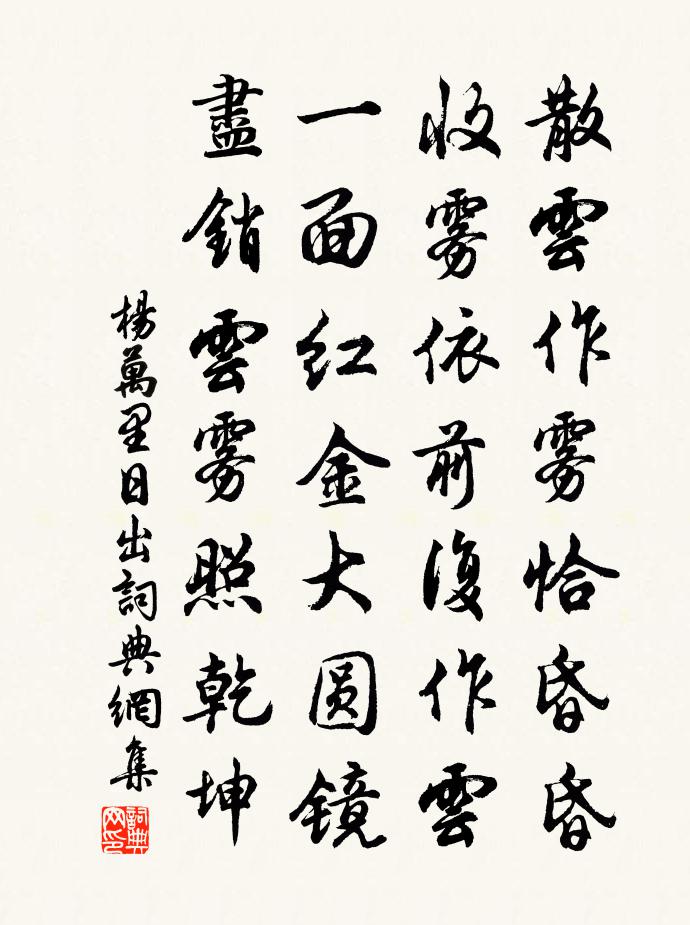 散雲作雾恰昏昏
收雾依前復作雲
一面红金大圆镜
盡銷雲雾照乾坤
楊萬里日出詞典網集
詞典网印